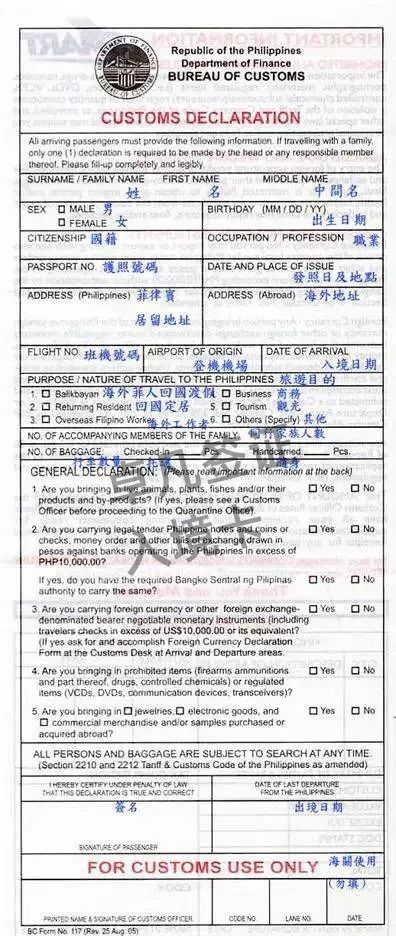 Republic of the Philippines
Department of Finance
BUREAU OF CUSTOMS
CUSTOMS DECLARATION
All arriving passengers must provide the following information. If travelling with a family,
only one (1) declaration is required to be made by the head or any responsible member
thereof. Please fill-up completely and legibly.
SURNAME / FAMILY NAME FIRST NAME MIDDLE NAME
姓 名 中間名
SEX □ MALE 男 BIRTHDAY (MM / DD / YY)
□ FEMALE 女 出生日期
CITIZENSHIP 國籍 OCCUPATION / PROFESSION 職業
PASSPORT NO. 護照號碼 DATE AND PLACE OF ISSUE
發照日及地點
ADDRESS (Philippines) 菲律賓 ADDRESS (Abroad) 海外地址
居留地址
FLIGHT NO. 班機號碼 AIRPORT OF ORIGIN DATE OF ARRIVAL
登機機場 入境日期
PURPOSE / NATURE OF TRAVEL TO THE PHILIPPINES 旅遊目的
1. □ Balikbayan 海外菲人回國渡假 4. □ Business 商務
2. □ Returning Resident 回國定居 5. □ Tourism 觀光
3. □ Overseas Filipino Worker 6. □ Others (Specify) 其他
海外工作者
NO. OF ACCOMPANYING MEMBERS OF THE FAMILY 同行家族人數
NO. OF BAGGAGE: Checked-in Pcs. Handcarried Pcs.
行李數量
GENERAL DECLARATION: (Please read important information at the back)
1. Are you bringing in live animals, plants, fishes and/or their □ Yes □ No
products and by-products? (If yes, please see a Customs
Officer before proceeding to the Quarantine Office)
2. Are you carrying legal tender Philippine notes and coins or □ Yes □ No
checks, money order and other bills of exchange drawn in
pesos against banks operating in the Philippines in excess of
PHP10,000.00?
If yes, do you have the required Bangko Sentral ng Pilipinas □ Yes □ No
authority to carry the same?
3. Are you carrying foreign currency or other foreign exchange- □ Yes □ No
denominated bearer negotiable monetary instruments (including
travelers checks in excess of US$10,000.00 or its equivalent?
(If yes ask for and accomplish Foreign Currency Declaration
Form at the Customs Desk at Arrival and Departure areas.
4. Are you bringing in prohibited items (firearms ammunitions □ Yes □ No
and part thereof, drugs, controlled chemicals) or regulated
items (VCDs, DVDs, communication devices, transceivers)?
5. Are you bringing in □ jewelries, □ electronic goods, and □ Yes □ No
□ commercial merchandise and/or samples purchased or
acquired abroad?
入境卡
ALL PERSONS AND BAGGAGE ARE SUBJECT TO SEARCH AT ANY TIME.
(Section 2210 and 2212 Tariff & Customs Code of the Philippines as amended)
I HEREBY CERTIFY UNDER PENALTY OF LAW DATE OF LAST DEPARTURE
THAT THIS DECLARATION IS TRUE AND CORRECT FROM THE PHILIPPINES
簽名 出境日期
SIGNATURE OF PASSENGER
FOR CUSTOMS USE ONLY 海關使用
(勿填)
PRINTED NAME & SIGNATURE OF CUSTOMS OFFICER CODE NO. LANE NO. DATE
BC Form No. 117 (Rev. 25 Aug. 05)